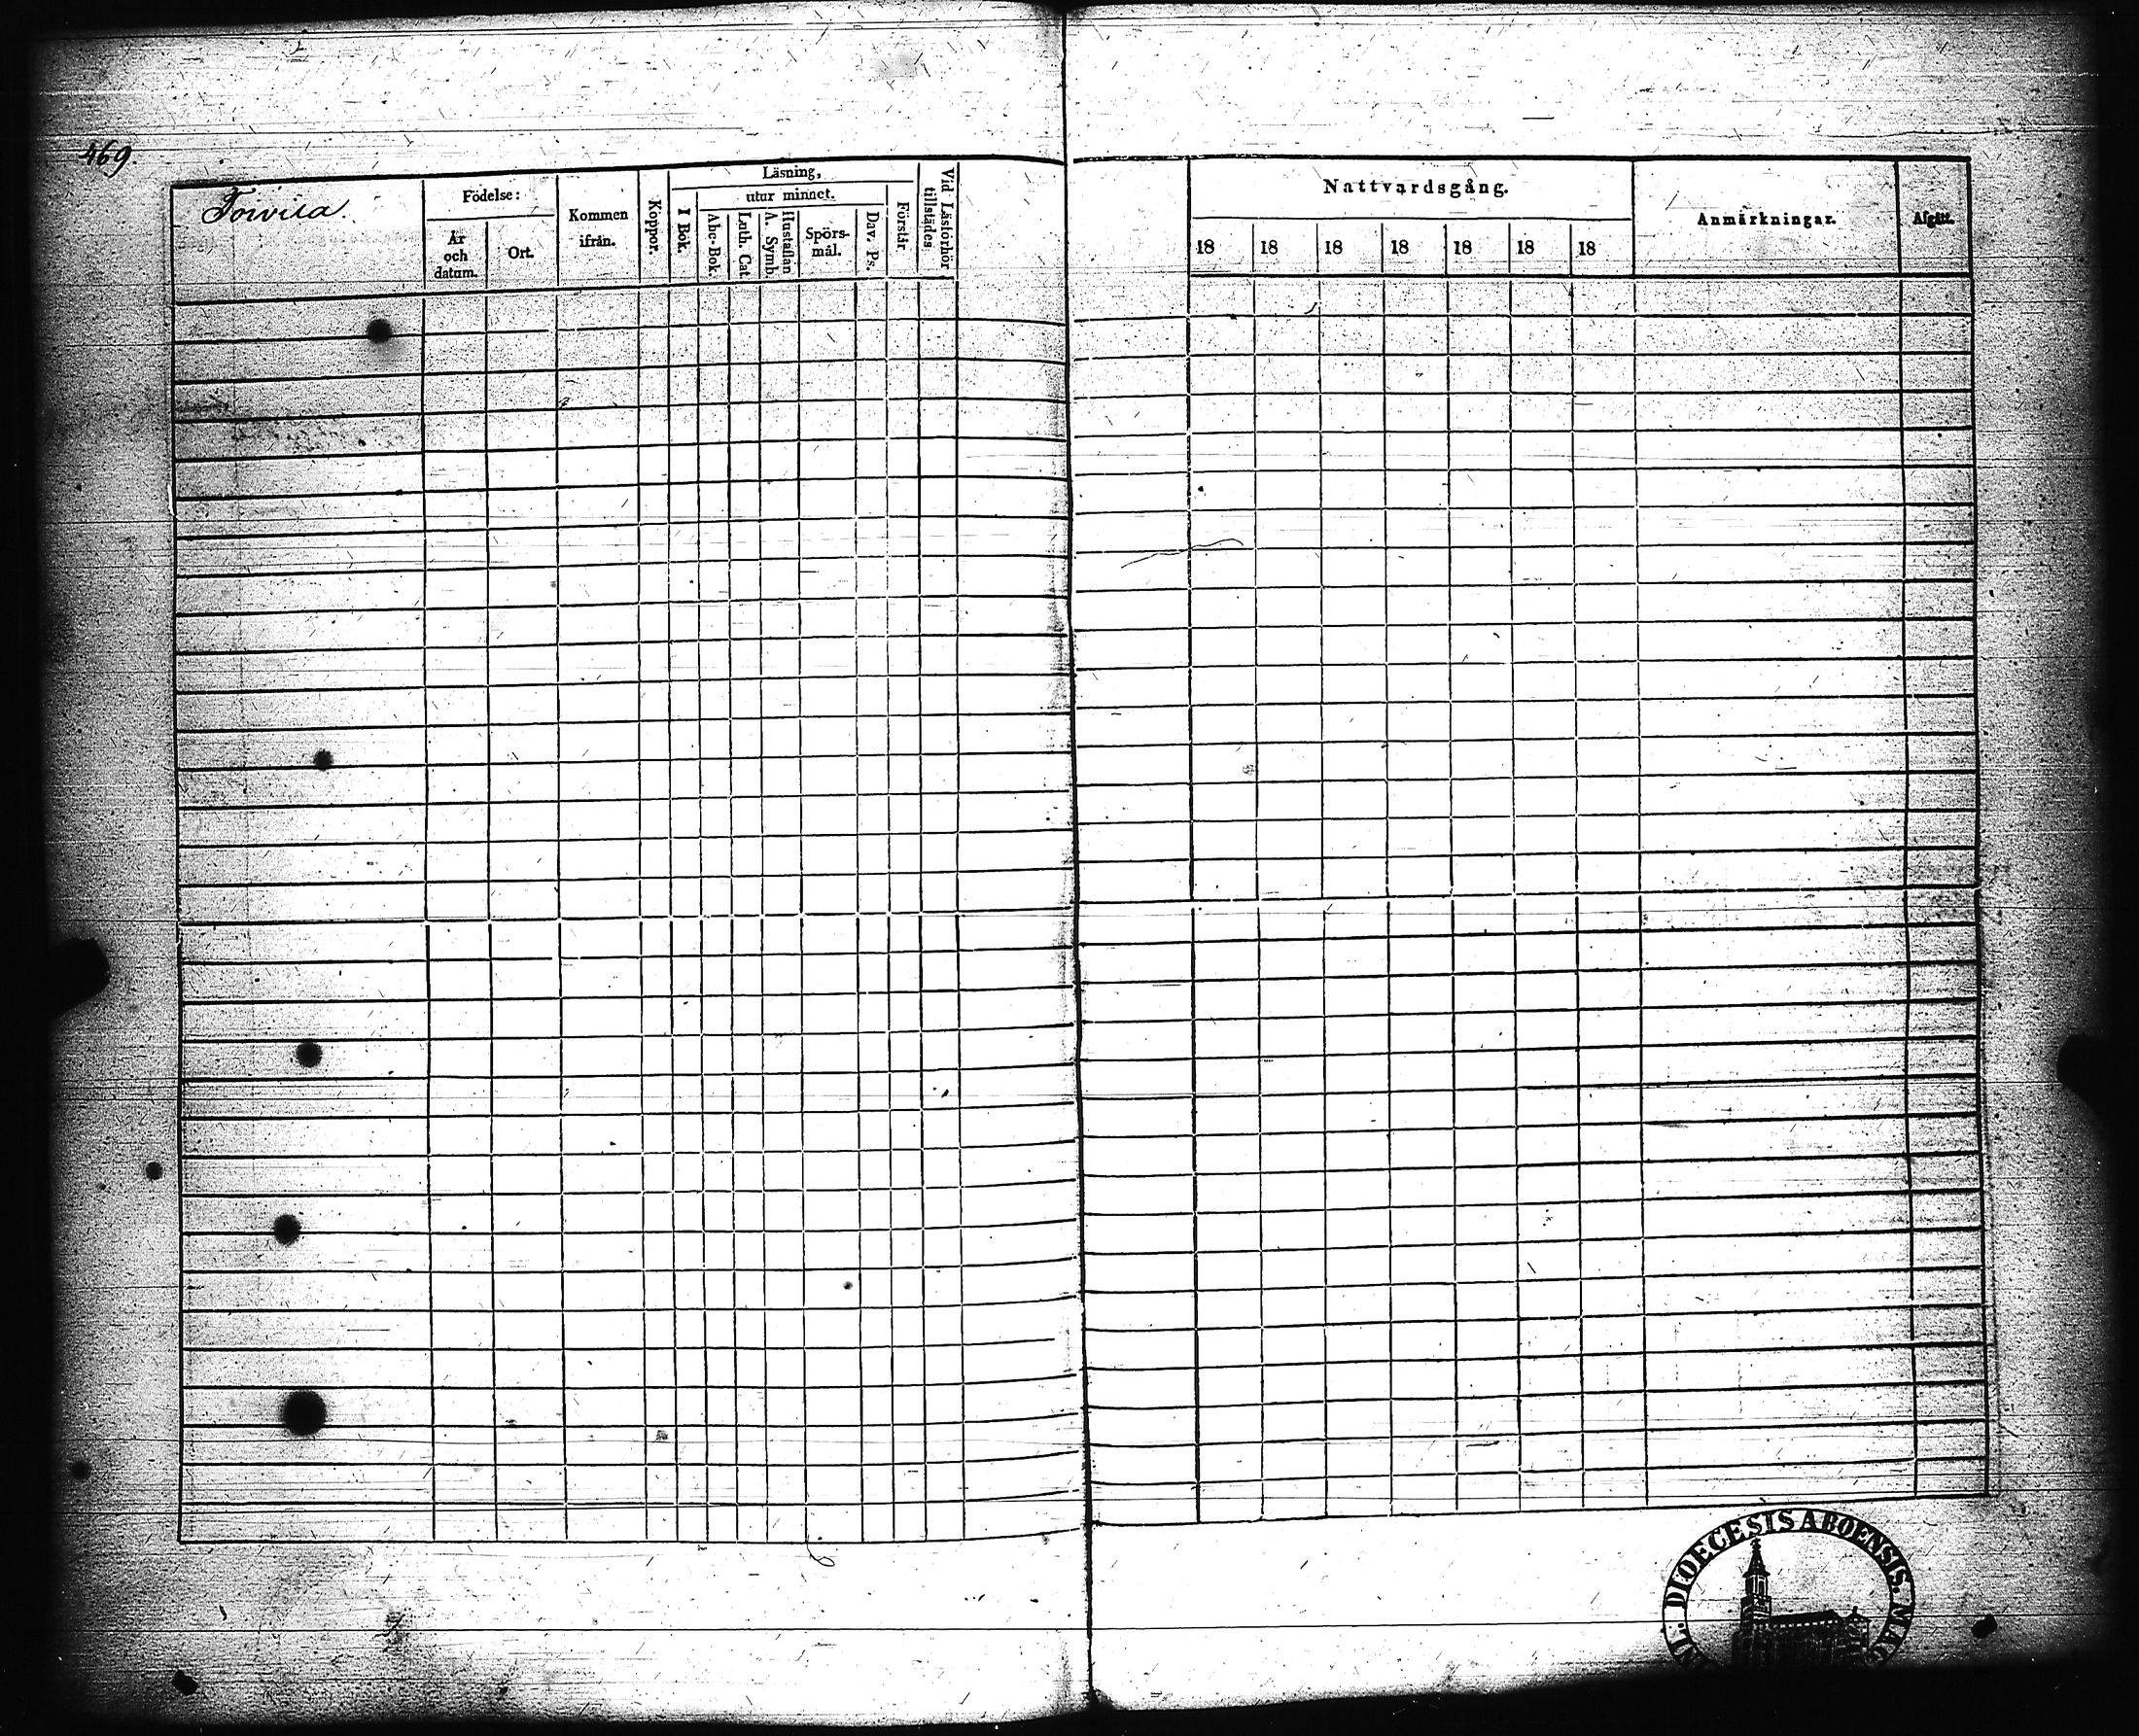 469
Toivila.
Födelse:
År och datum.
Ort.
Kommen ifrån.
Koppor.
Läsning,
I Bok.
utur minnet.
Abc-Bok.
Luth. Cat.
Hustaflan A. Symb.
Spörs-mål.
Dav. Ps.
Förstår.
Vid Läsförhör tillstädes
Nattvardsgång.
18 18 18 18 18 18 18
Anmärkningar.
Afgått.
DIOECESIS ABOENSIS.